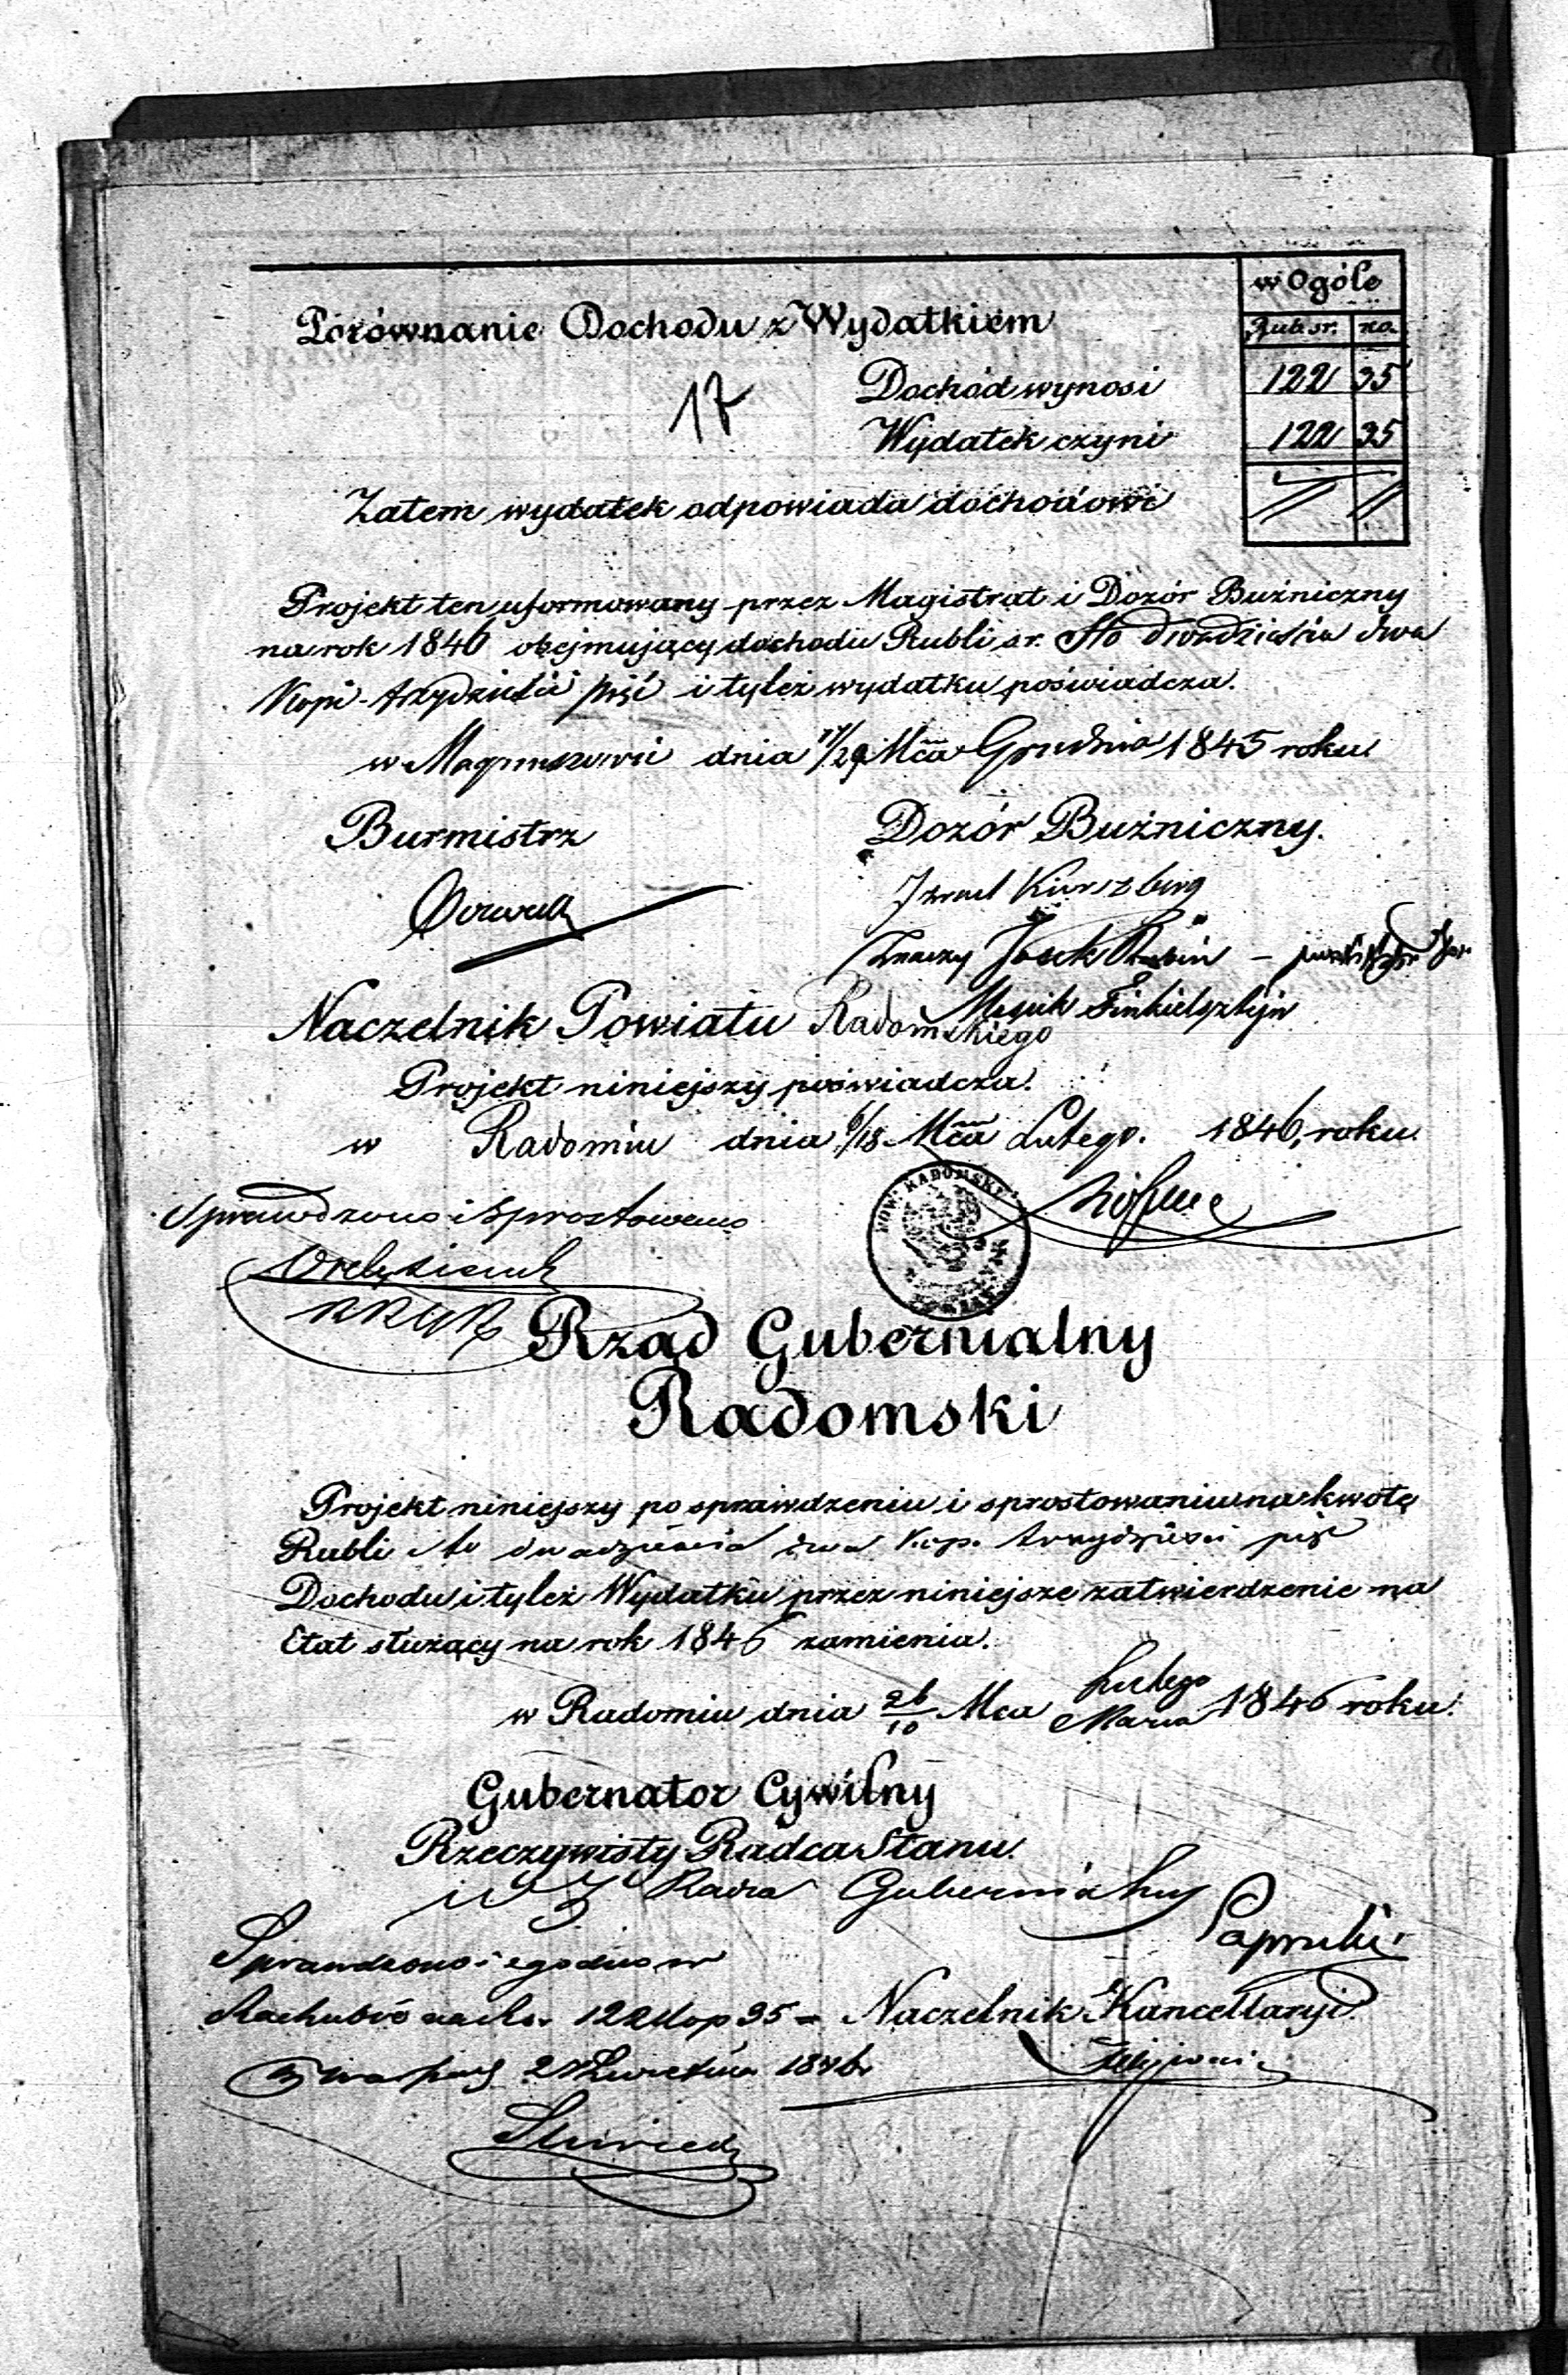 w Ogóle
Porównanie Dochodu z Wydatkiem
Rub. sr. ko.
17
Dochód wynosi 122 35
Wydatek czyni 122 35
Zatem wydatek odpowiada dochodowi
Projekt ten uformowany przez Magistrat i Dozór Buźniczny
na rok 1846 obejmujący dochodu Rubli sr. Sto dwadzieścia dwa
Kopi. trzydzieści pięć i tyleż wydatku poświadcza.
w Magnuszewie dnia 17/29 Mca Grudnia 1845 roku.
Burmistrz Dozór Buźniczny.
Izrael Kirszberg
Znaczy Josek Rubin
Naczelnik Powiatu Radomskiego
Finkielsztejn
Projekt niniejszy poświadcza.
w Radomiu dnia 6/18 Mca Lutego. 1846 roku.
POW. RADOMSKI
Sprawdzono i Sprostowano
Rząd Gubernialny
Radomski
Projekt niniejszy po sprawdzeniu i sprostowaniu na kwotę
Rubli sto dwadzieścia dwa Kop. trzydzieści pięć
Dochodu i tyleż Wydatku przez niniejsze zatwierdzenie na
Etat służący na rok 1846 zamienia.
w Radomiu dnia 26/10 Mca Lutego/Marca 1846 roku.
Gubernator Cywilny
Rzeczywisty Radca Stanu.
Radca Gubernialny
Sprawdzono i zgodno w
Rachubie na rs. 122 kop 35 =
Naczelnik Kancellaryi.
Kwietnia 1846